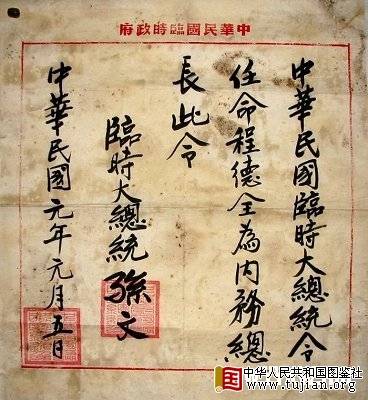 中華民國臨時政府
中華民國臨時大總統令
任命程德全為内務總
長此令
臨時大總統孫文
中華民國元年元月五日
国
中华人民共和国图鉴社
www.tujian.org